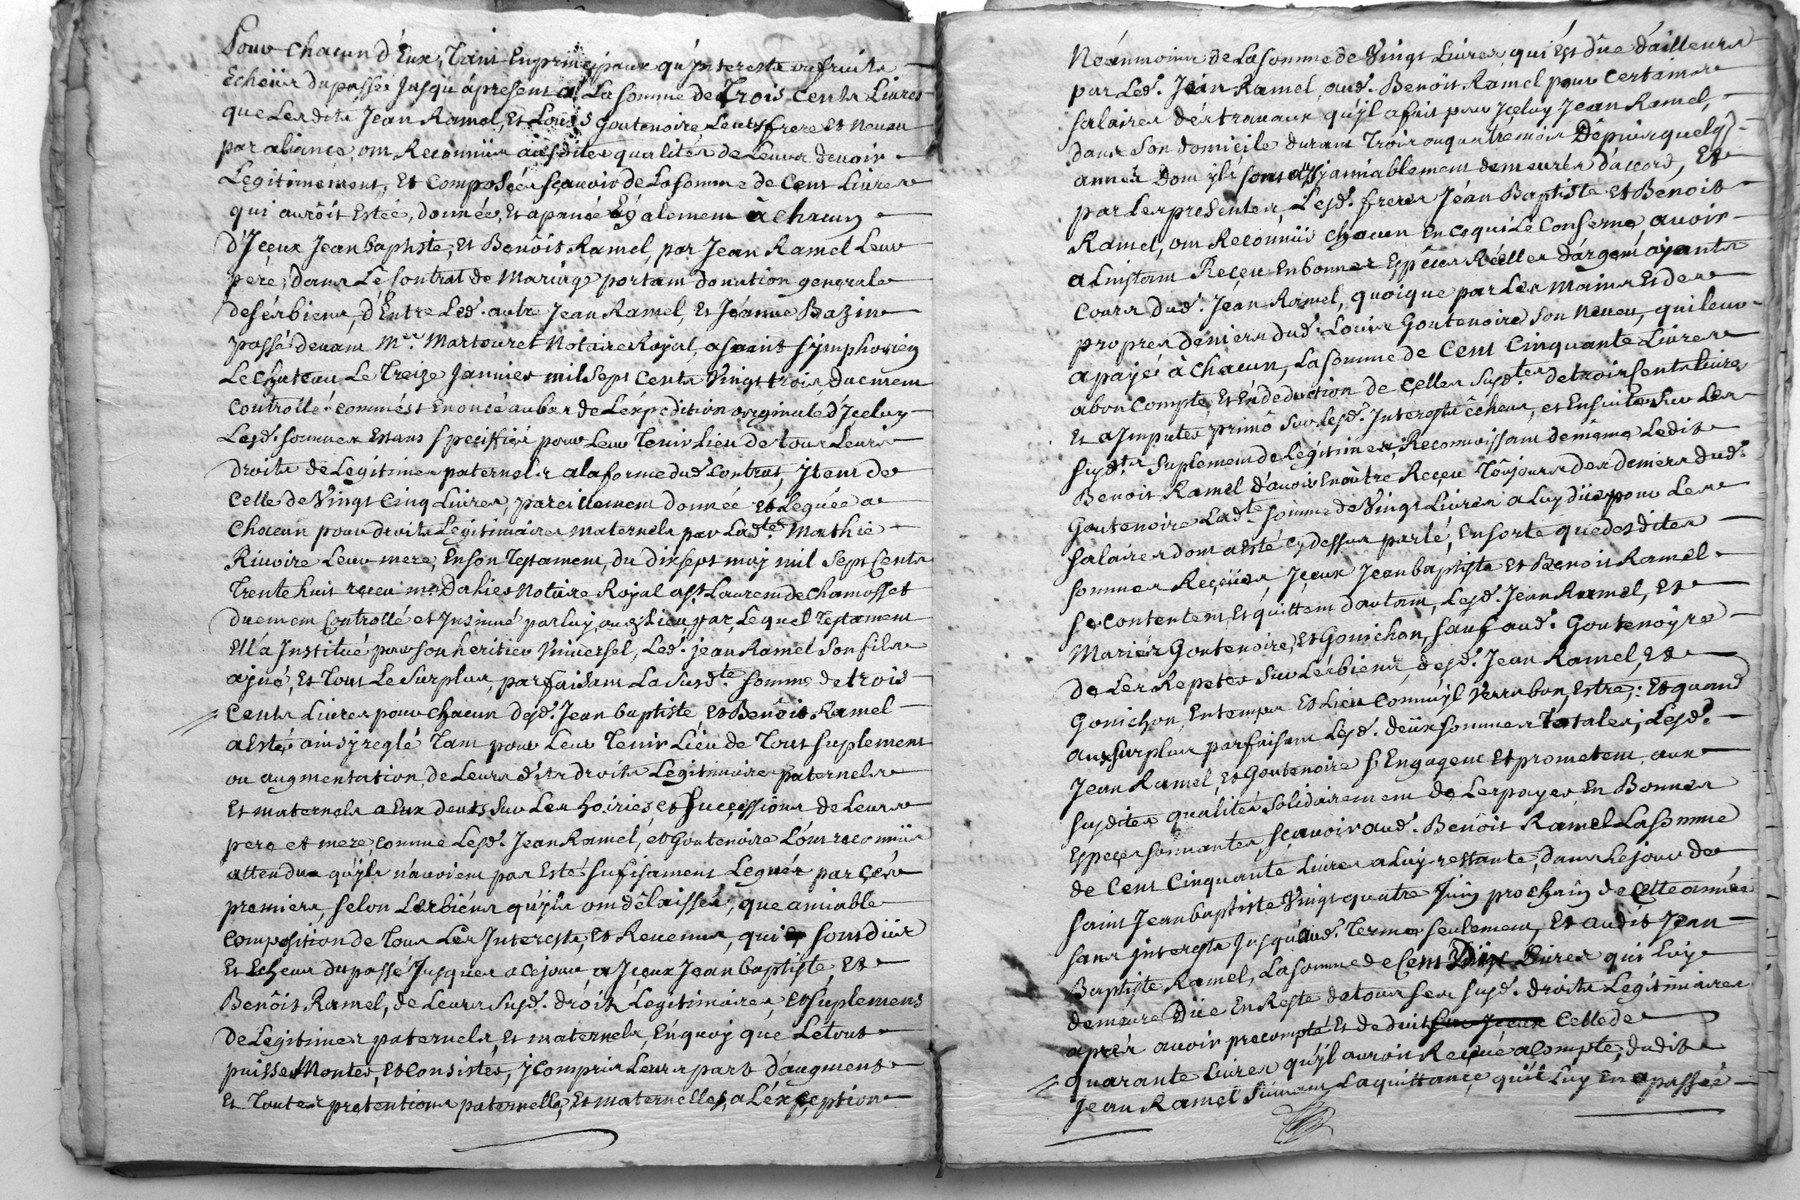 Pour chacun d'Eux, Tant En principaux qu'Interests ou fruits
Echeus du passé Jusqu'à present à La somme de Trois Cents Livres
que Lesdits Jean Ramel, Et Louis Goutenoire Leurs frere Et Neveu
par aliance ont Reconnüs ausdites qualités de Leurs devoir
Legitimement, Et Composéer sçavoir de La somme de Cent Livres
qui auroit Estée, donnée, Et apanée Egalement à chacun
D'Iceux Jean baptiste, Et Benoit Ramel, par Jean Ramel Leur
pere, dans Le Contrat de Mariage portant donation generale
de ses biens, d'Entre Led. autre Jean Ramel, Et Jeanne Bazin
passé devant Me. Martouret Notaire Royal, a saint simphorien
Le Chateau Le Treize Janvier mil sept Cents Vingt trois duement
Controllé comm'est Enoncé au bas de L'expedition originale d'Jceluy
Lesd. sommes Estans speciffié pour Leur Tenir lieu de tous Leurs
droits de Legitimes paternels a la forme dud. Contrat, Item de
Celle de Vingt Cinq Livres, pareillement donnée et Leguée a
Chacun pour droits Legitimaires maternels par Ladte. Mathie
Rivoire Leur mere, En son Testament, du dix sept may mil sept Cents
Trente huit receu me. Dahies Notaire Royal a st. Laurent de Chamosset
duement Controllé et Insinué par luy, audt Lieu par, Lequel Testament
Ell'a Institué pour son heritier Universel, Led. jean Ramel son fils
ajné, Et Tout Le surplus, parfaisant La susdte. somme de trois
Cents Livres pour chacun desd. Jean baptiste, Et Benoit Ramel
a Esté ainsy reglé Tant pour Leur Tenir Lieu de Tout suplement
ou augmentation, de Leurs dits droits Legitimaires paternels
Et maternels a Eux deus sur Les hoiries et successions de Leurs
pere et mere, comme Lesd. Jean Ramel, et Goutenoire L'ont reconnüs
attendu qu'ils n'avoient pas Esté sufisament Legués par ces
premiers, selon Les biens qu'ils ont délaissés, que amiable
Composition de Tous Les Interests, Et Revenus, qui sont düs
Et Echeus du passé Jusques a ce jour, a Jceux Jean baptiste, Et
Benoit Ramel, de Leurs susd. droits Legitimaires, Et suplemens
De Legitimes paternels, Et maternels, En quoy que Le tout
puisse Monter, Et Consister, y compris Leurs parts d'augment
Et Toutes pretentions paternelles, Et maternelles, a L'exception
Néanmoins de La somme de Vingt Livres, qui Est düe d'ailleurs
par Led. Jean Ramel, aud. Benoit Ramel pour Certains
salaires des travaux qu'il a fait pour Jceluy Jean Ramel,
dans son domicile durant Trois ou quatre mois Depuis quelqs.
année Dont ils sont amiablement demeurés d'accord, Et
par Les presentes, Lesd. freres Jean Baptiste Et Benoit
Ramel, ont Reconnüs chacun En ce qui Le Conserne, avoir
a L'instant Receu En bonnes Especes Réelles d'argent ayants
Cours dud. Jean Ramel, quoique par Les mains Et des
propres deniers dud. Louis Goutenoire son Neveu, qui leur
a payé à chacun, La somme de Cent Cinquante Livres
a bon Compte, Et En deduction de Celles susdtes. de trois Cents livres
Et a Jmputer primo sur Lesd. Interests Echeus, et Ensuite sur Les
susdts. suplements de Légitimes; Reconnoissant de même Ledit
Benoit Ramel d'avoir En outre Receu Toujours des deniers dud.
Goutenoire Ladte. somme de Vingt Livres a Luy düe pour Les
salaires dont a Esté cy dessus parlé, En sorte que desdites
sommes Reçües Jceux Jean baptiste Et Benoit Ramel
se contentent, Et quittent d'autant, Lesd. Jean Ramel, Et
Mariés Goutenoire, Et Gonichon, sauf aud. Goutenoyre
De Les Repeter sur Les biens, desd. Jean Ramel, Et
Gonichon, En temps Et Lieu comm'il Verra bon Estre; Et quand
aux surplus parfaisant Lesd. deux sommes Totales, Lesd.
Jean Ramel, Et Goutenoire s'Engagent Et prometent aux
susdites qualités solidairement de Les payer En Bonnes
Especes sonnantes, sçavoir aud. Benoit Ramel La somme
de Cent Cinquante Livres a Luy restante, dans Le jour de
saint Jean baptiste Vingt quatre Juin prochain de cette année
sans interests jusqu'aud. Terme seulement, Et audit Jean
Baptiste Ramel, La somme de Cent Dix Livres qui Luy
demeure düe En Reste de tous ses susd. droits Legitimaires
aprés avoir precompté Et deduit sur Jceux Celle de
quarante Livres qu'il auroit Receue a Compte, dudit
Jean Ramel suivant La quittance qu'il Luy En a passée